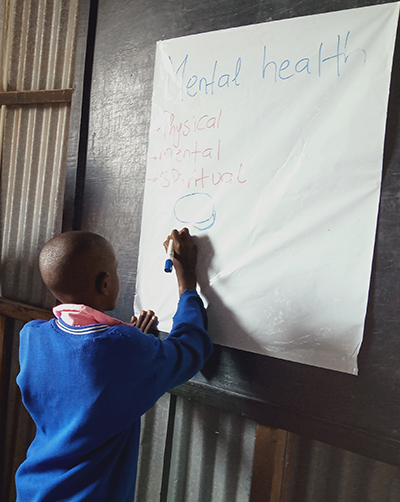 Mental health
- Physical
- mental
- spiritual